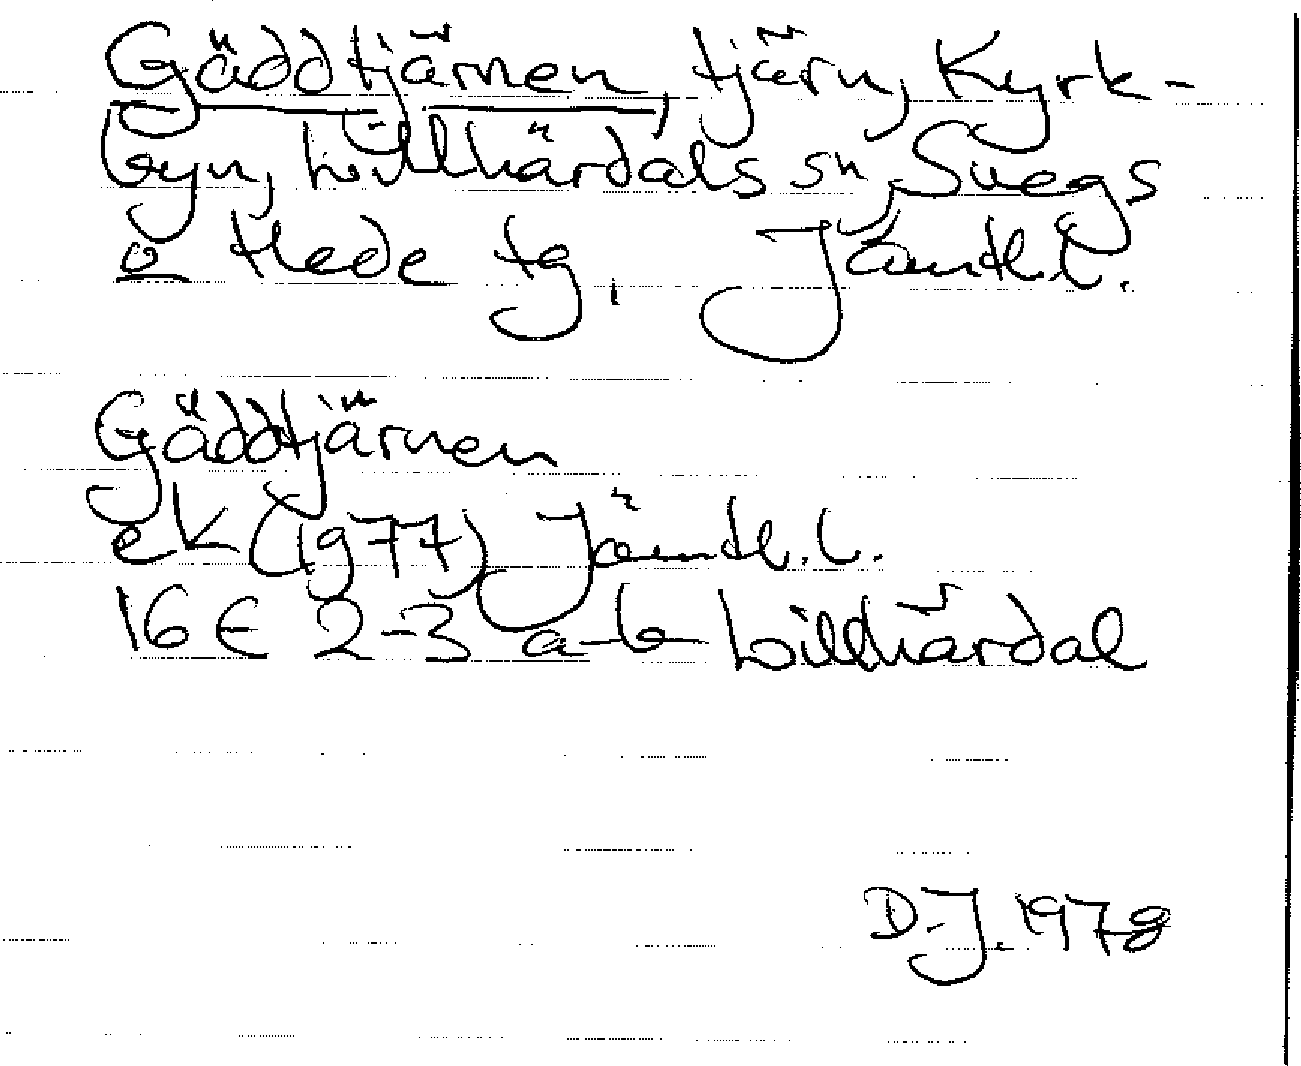 Gäddtjärnen, tjärn, Kyrk-
byn, Lillhärdals sn, Svegs
o Hede tg, Jämtl. l.
Gäddtjärnen
ek (1977) Jämtl. l.
16 E 2-3 a-b Lillhärdal
D-J. 1978